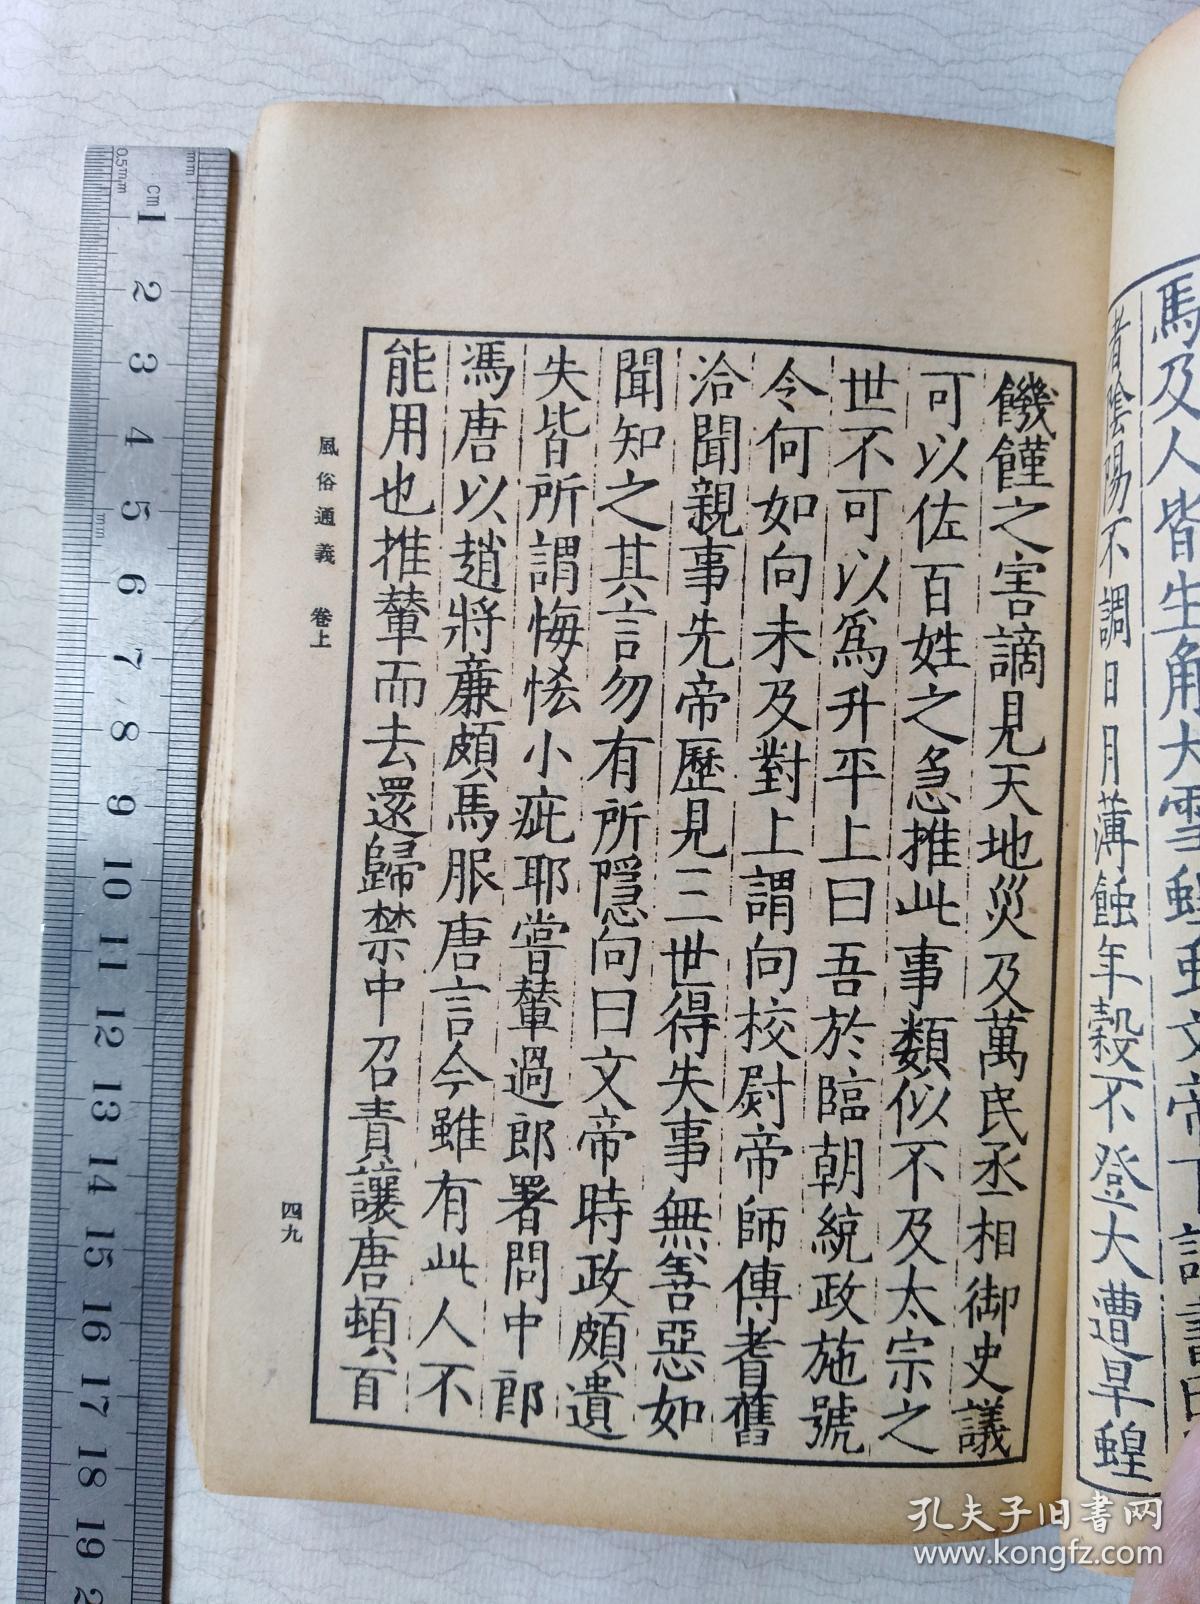 馬及人皆生角大雪蝗蟲文帝下詔書曰
者陰陽不調日月薄蝕年穀不登大遭旱蝗
饑饉之害謫見天地災及萬民丞相御史議
可以佐百姓之急推此事類似不及太宗之
世不可以為升平上曰吾於臨朝統政施號
令何如向未及對上謂向校尉帝師傅耆舊
洽聞親事先帝歷見三世得失事無善惡如
聞知之其言勿有所隱向曰文帝時政頗遺
失皆所謂悔恡小疵耶嘗輦過郎署問中郎
馮唐以趙將廉頗馬服唐言今雖有此人不
能用也推輦而去還歸禁中召責讓唐頓首
風俗通義 卷上
四九
孔夫子旧书网
www.kongfz.com
0.5mm
mm
cm
1
2
3
4
5
6
7
8
9
10
11
12
13
14
15
16
17
18
19
2